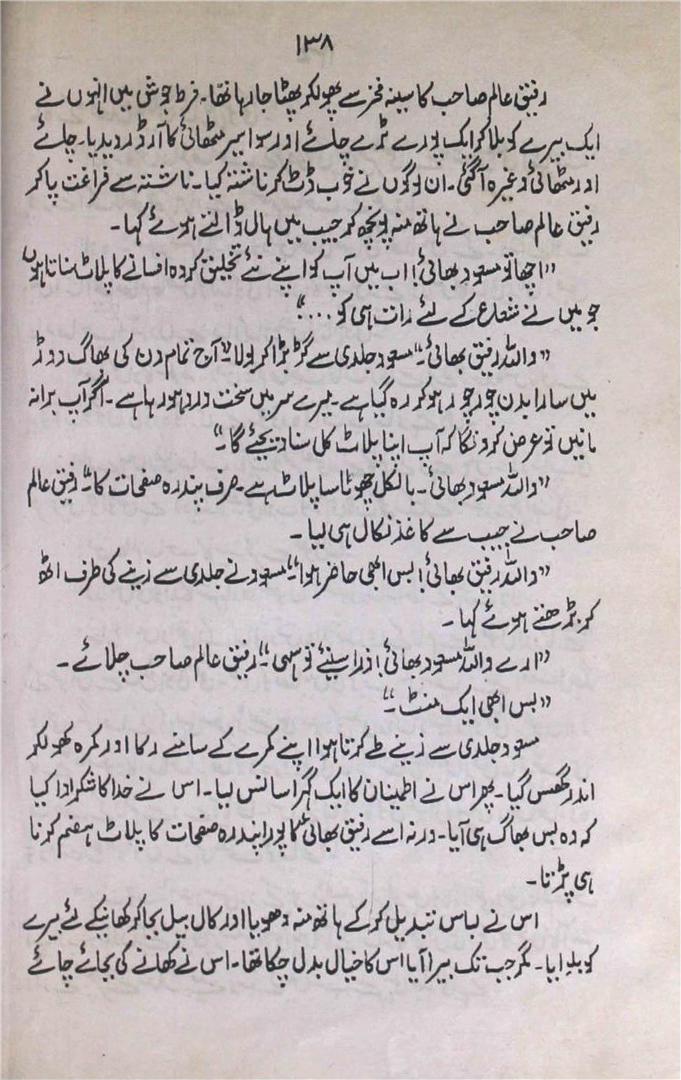 ۱۳۸
رفیق عالم صاحب کا سینہ فخر سے پھولکر پھٹا جا رہا تھا۔ فرط جوش میں انہوں نے
ایک بیرے کو بلا کر ایک پورے ٹرے چائے اور سوا سیر مٹھائی کا آرڈر دیدیا۔ چائے
اور مٹھائی وغیرہ آگئی۔ ان لوگوں نے خوب ڈٹ کر ناشتہ کیا۔ ناشتہ سے فراغت پا کر
رفیق عالم صاحب نے ہاتھ منہ پونچھ کر جیب میں ہال ڈالتے ہوئے کہا۔
”اچھا تو مسعود بھائی! اب میں آپ کو اپنے نئے تخلیق کردہ افسانے کا پلاٹ سناتا ہوں
جو میں نے شعاع کے لئے رات ہی کو ...“
”واللہ رفیق بھائی۔“ مسعود جلدی سے گڑبڑا کر بولا ”آج تمام دن کی بھاگ دوڑ
میں سارا بدن چور چور ہو کر رہ گیا ہے۔ میرے سر میں سخت درد ہو رہا ہے۔ اگر آپ برا نہ
مانیں تو عرض کرونگا کہ آپ اپنا پلاٹ کل سنا دیجئے گا۔“
”واللہ مسعود بھائی۔ بالکل چھوٹا سا پلاٹ ہے۔ صرف پندرہ صفحات کا۔“ رفیق عالم
صاحب نے جیب سے کاغذ نکال ہی لیا۔
”واللہ رفیق بھائی! بس ابھی حاضر ہوا۔“ مسعود نے جلدی سے زینے کی طرف اٹھ
کر بڑھتے ہوئے کہا۔
”ارے واللہ مسعود بھائی! ذرا سنیئے تو سہی۔“ رفیق عالم صاحب چلائے۔
”بس ابھی ایک منٹ۔“
مسعود جلدی سے زینے طے کرتا ہوا اپنے کمرے کے سامنے رکا اور کمرہ کھولکر
اندر گھس گیا۔ پھر اس نے اطمینان کا ایک گہرا سانس لیا۔ اس نے خدا کا شکر ادا کیا
کہ وہ بس بھاگ ہی آیا۔ ورنہ اسے رفیق بھائی کا پورا پندرہ صفحات کا پلاٹ ہضم کرنا
ہی پڑتا۔
اس نے لباس تبدیل کر کے ہاتھ منہ دھویا اور کال بیل بجا کر کھانیکے لئے بیرے
کو بلایا۔ مگر جب تک بیرا آیا اس کا خیال بدل چکا تھا۔ اس نے کھانے کی بجائے چائے